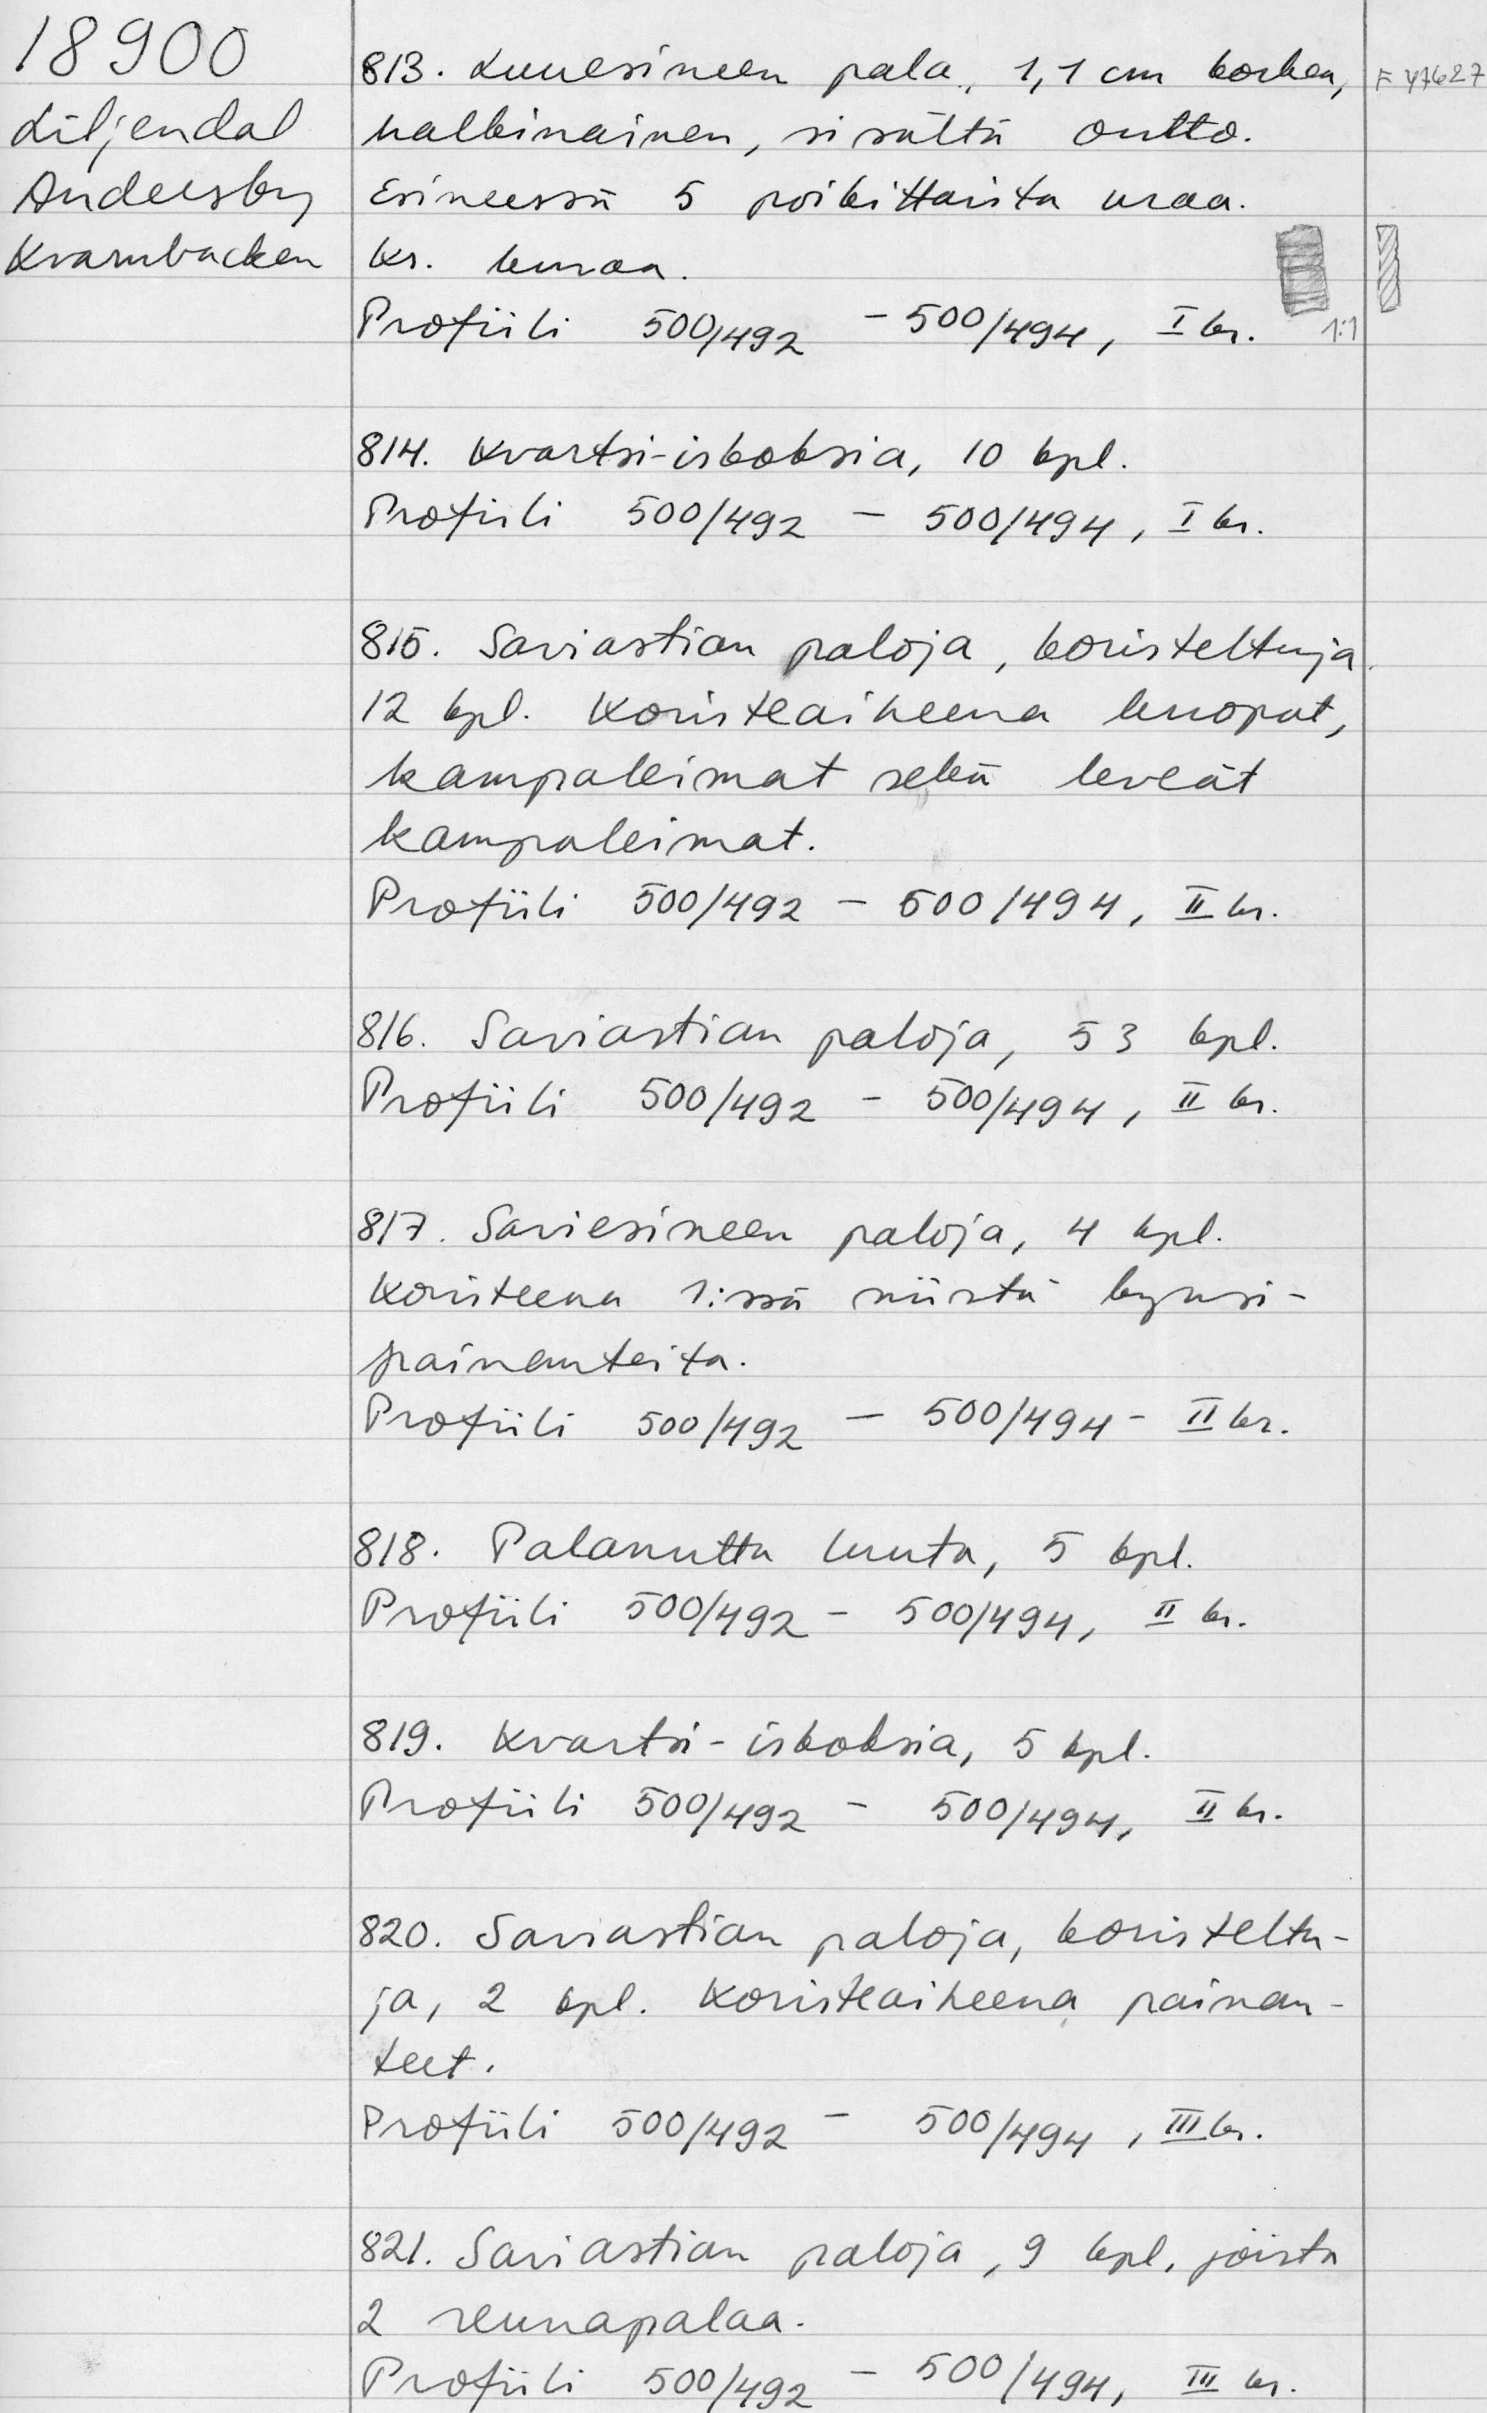 18900
Liljendal
Andersby
Kvarnbacken
813. Luuesineen pala, 1,1 cm korkea, F 47627
nalkinainen, sisältä ontto.
Esineessä 5 poikittaista uraa.
Ks. kuvaa.
Profiili 500/492 - 500/494, I kr. 1:1
814. Kvartsi-iskoksia, 10 kpl.
Profiili 500/492 - 500/494, I kr.
815. Saviastian paloja, koristeltuja
12 kpl. Koristeaiheena kuopat,
kampaleimat sekä leveät
kampaleimat.
Profiili 500/492 - 500/494, II kr.
816. Saviastian paloja, 53 kpl.
Profiili 500/492 - 500/494, II kr.
817. Saviesineen paloja, 4 kpl.
Koristeena 1:ssä niistä kynsi-
painanteita.
Profiili 500/492 - 500/494 - II kr.
818. Palanutta luuta, 5 kpl.
Profiili 500/492 - 500/494, II kr.
819. Kvartsi-iskoksia, 5 kpl.
Profiili 500/492 - 500/494, II kr.
820. Saviastian paloja, koristeltu-
ja, 2 kpl. Koristeaiheena painan-
teet.
Profiili 500/492 - 500/494, III kr.
821. Saviastian paloja, 9 kpl, joista
2 reunapalaa.
Profiili 500/492 - 500/494, III kr.